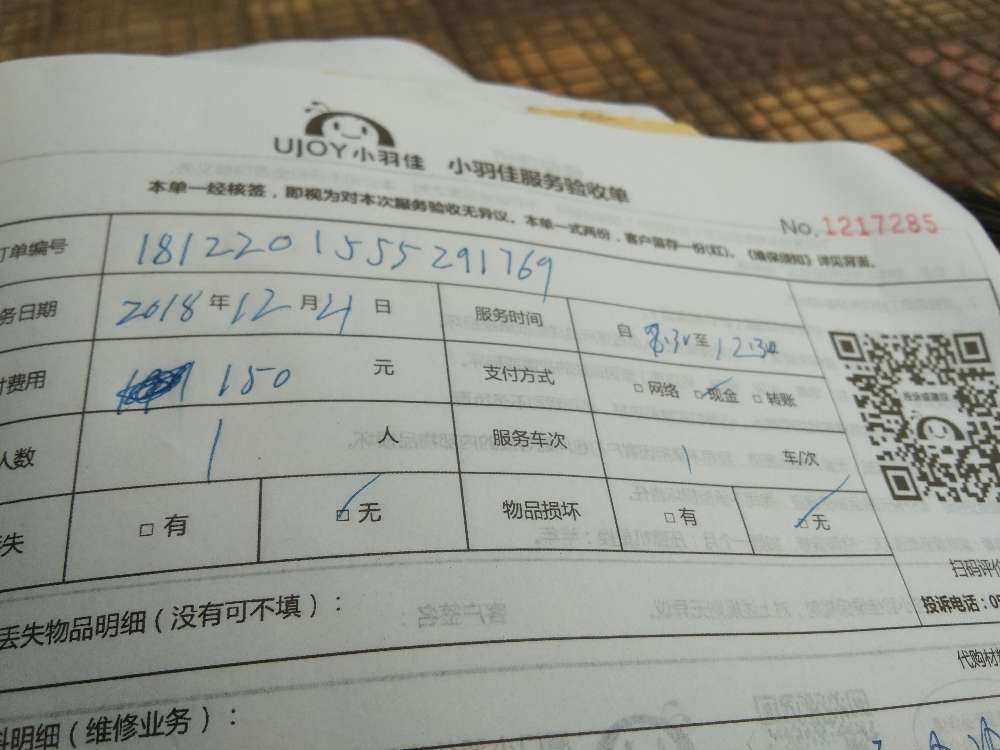 UJOY小羽佳 小羽佳服务验收单
本单一经核签，即视为对本次服务验收无异议。本单一式两份，客户留存一份(红)。《维保须知》详见背面。
No.1217285
订单编号 1812201555291769
务日期 2018年12月21日 服务时间 自8:30至12:30
付费用 150元 支付方式 □网络 ☑现金 □转账
人数 1人 服务车次 1 车/次
失 □有 ☑无 物品损坏 □有 ☑无
扫码评价
投诉电话：05
丢失物品明细（没有可不填）：
代购材
料明细（维修业务）：
客户签名：